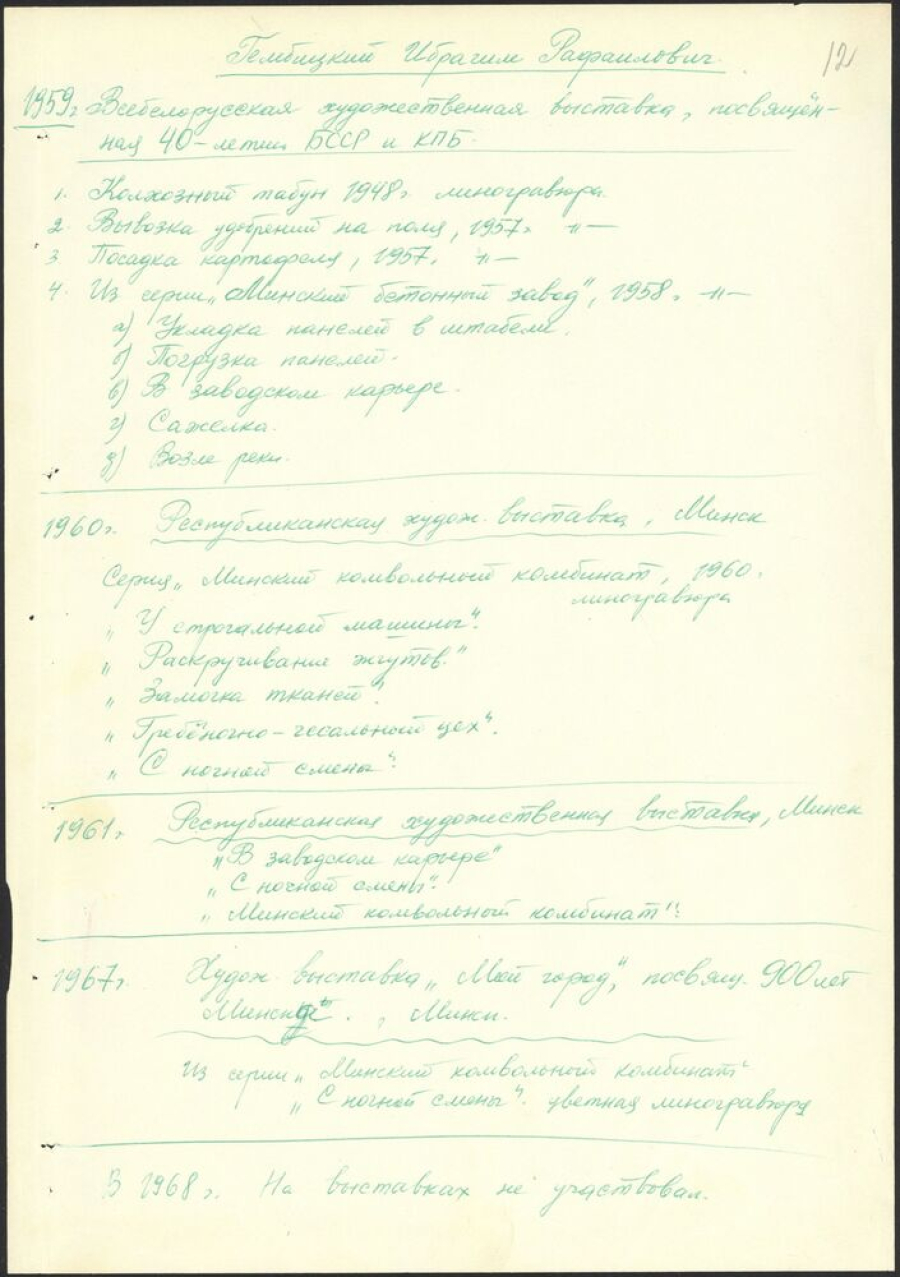 Гембицкий Ибрагим Рафаилович.
12
1959г. Всебелорусская художественная выставка, посвящён-
ная 40-летию БССР и КПБ.
1. Колхозный табун 1948г. линогравюра.
2. Вывозка удобрений на поля, 1957. –"–
3. Посадка картофеля, 1957. –"–
4. Из серии „Минский бетонный завод", 1958. –"–
а) Укладка панелей в штабели.
б) Погрузка панелей.
в) В заводском карьере.
г) Сажелка.
д) Возле реки.
1960г. Республиканская худож. выставка, Минск
Серия „Минский комвольный комбинат, 1960.
линогравюра
„У строгальной машины".
„Раскручивание жгутов."
„Замочка тканей".
„Гребёночно-чесальный цех".
„С ночной смены".
1961г. Республиканская художественная выставка, Минск
„В заводском карьере"
„С ночной смены".
„Минский комвольный комбинат".
1967г. Худож. выставка „Мой город", посвящ. 900 лет
Минска. , Минск.
Из серии „Минский комвольный комбинат"
„С ночной смены". цветная линогравюра
В 1968г. На выставках не участвовал.